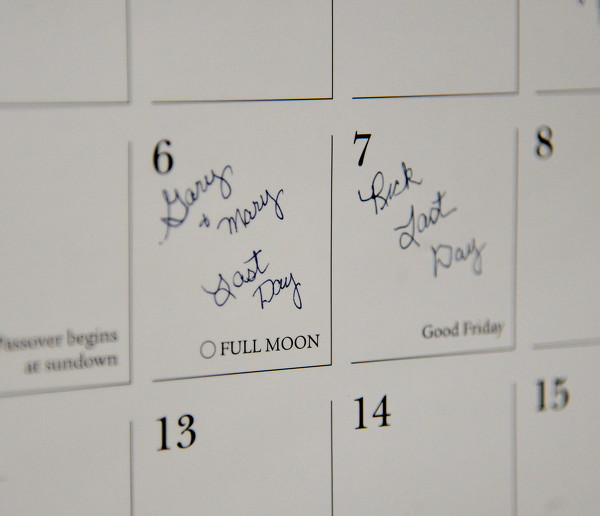 6
Gary
+ Mary
Last
Day
FULL MOON
7
Rick
Last
Day
Good Friday
8
Passover begins
at sundown
13
14
15